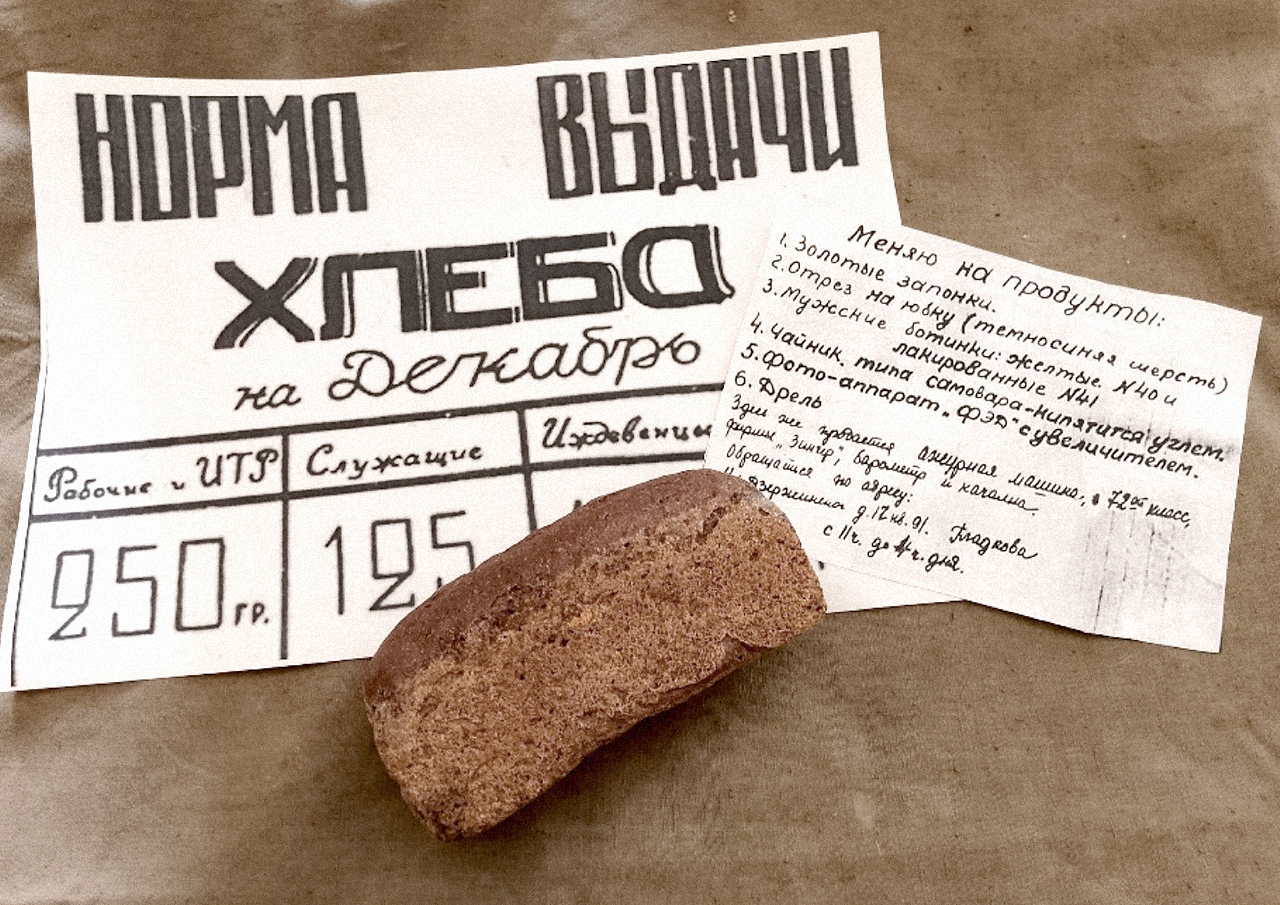 НОРМА ВЫДАЧИ
ХЛЕБА
на Декабрь
Рабочие и ИТР
Служащие
Иждевенцы
250 гр.
125
Меняю на продукты:
1. Золотые запонки.
2. Отрез на юбку (темносиняя шерсть)
3. Мужские ботинки: желтые N40 и
лакированные N41
4. Чайник типа самовара-кипятится углем.
5. Фото-аппарат „ФЭД" с увеличителем.
6. Дрель
Здесь же продается ажурная машина, 72ой класс,
фирмы „Зингер", барометр и
Обращаться по адресу:
Дзержинского д.17 кв.91. Гладкова
с 11ч. до ч. дня.